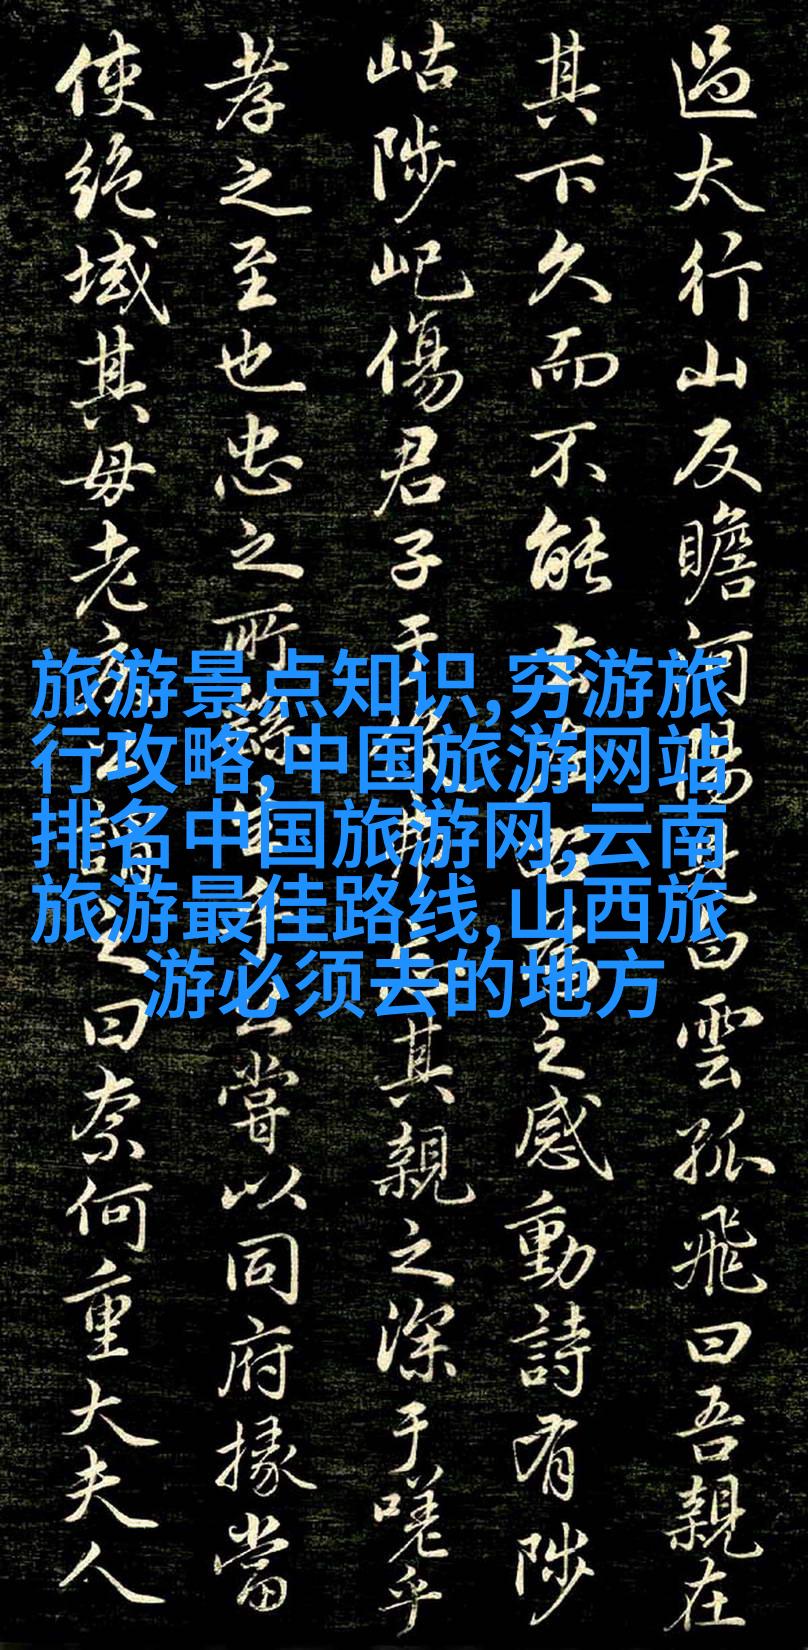 過太行山反瞻河陽見白雲孤飛曰吾親在
其下久而不能去左之感動詩有陟
岵陟屺傷君子于其親之深于嗟乎
孝之至也忠之所公嘗以同府掾當
使絕域其母老謂之曰奈何重大夫人
旅游景点知识,穷游旅
行攻略,中国旅游网站
排名中国旅游网,云南
旅游最佳路线,山西旅
游必须去的地方